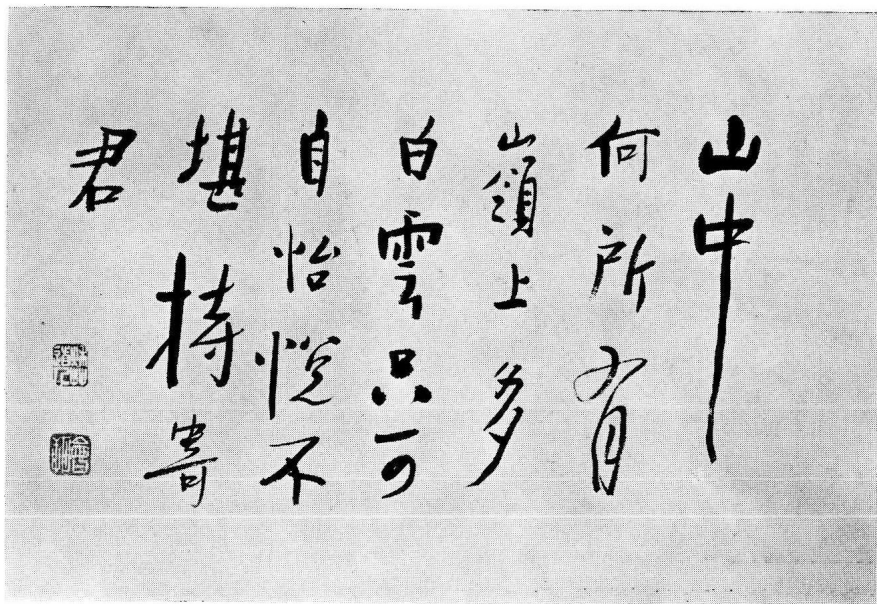 山中
何所有
嶺上多
白雲只可
自怡悅不
堪持寄
君